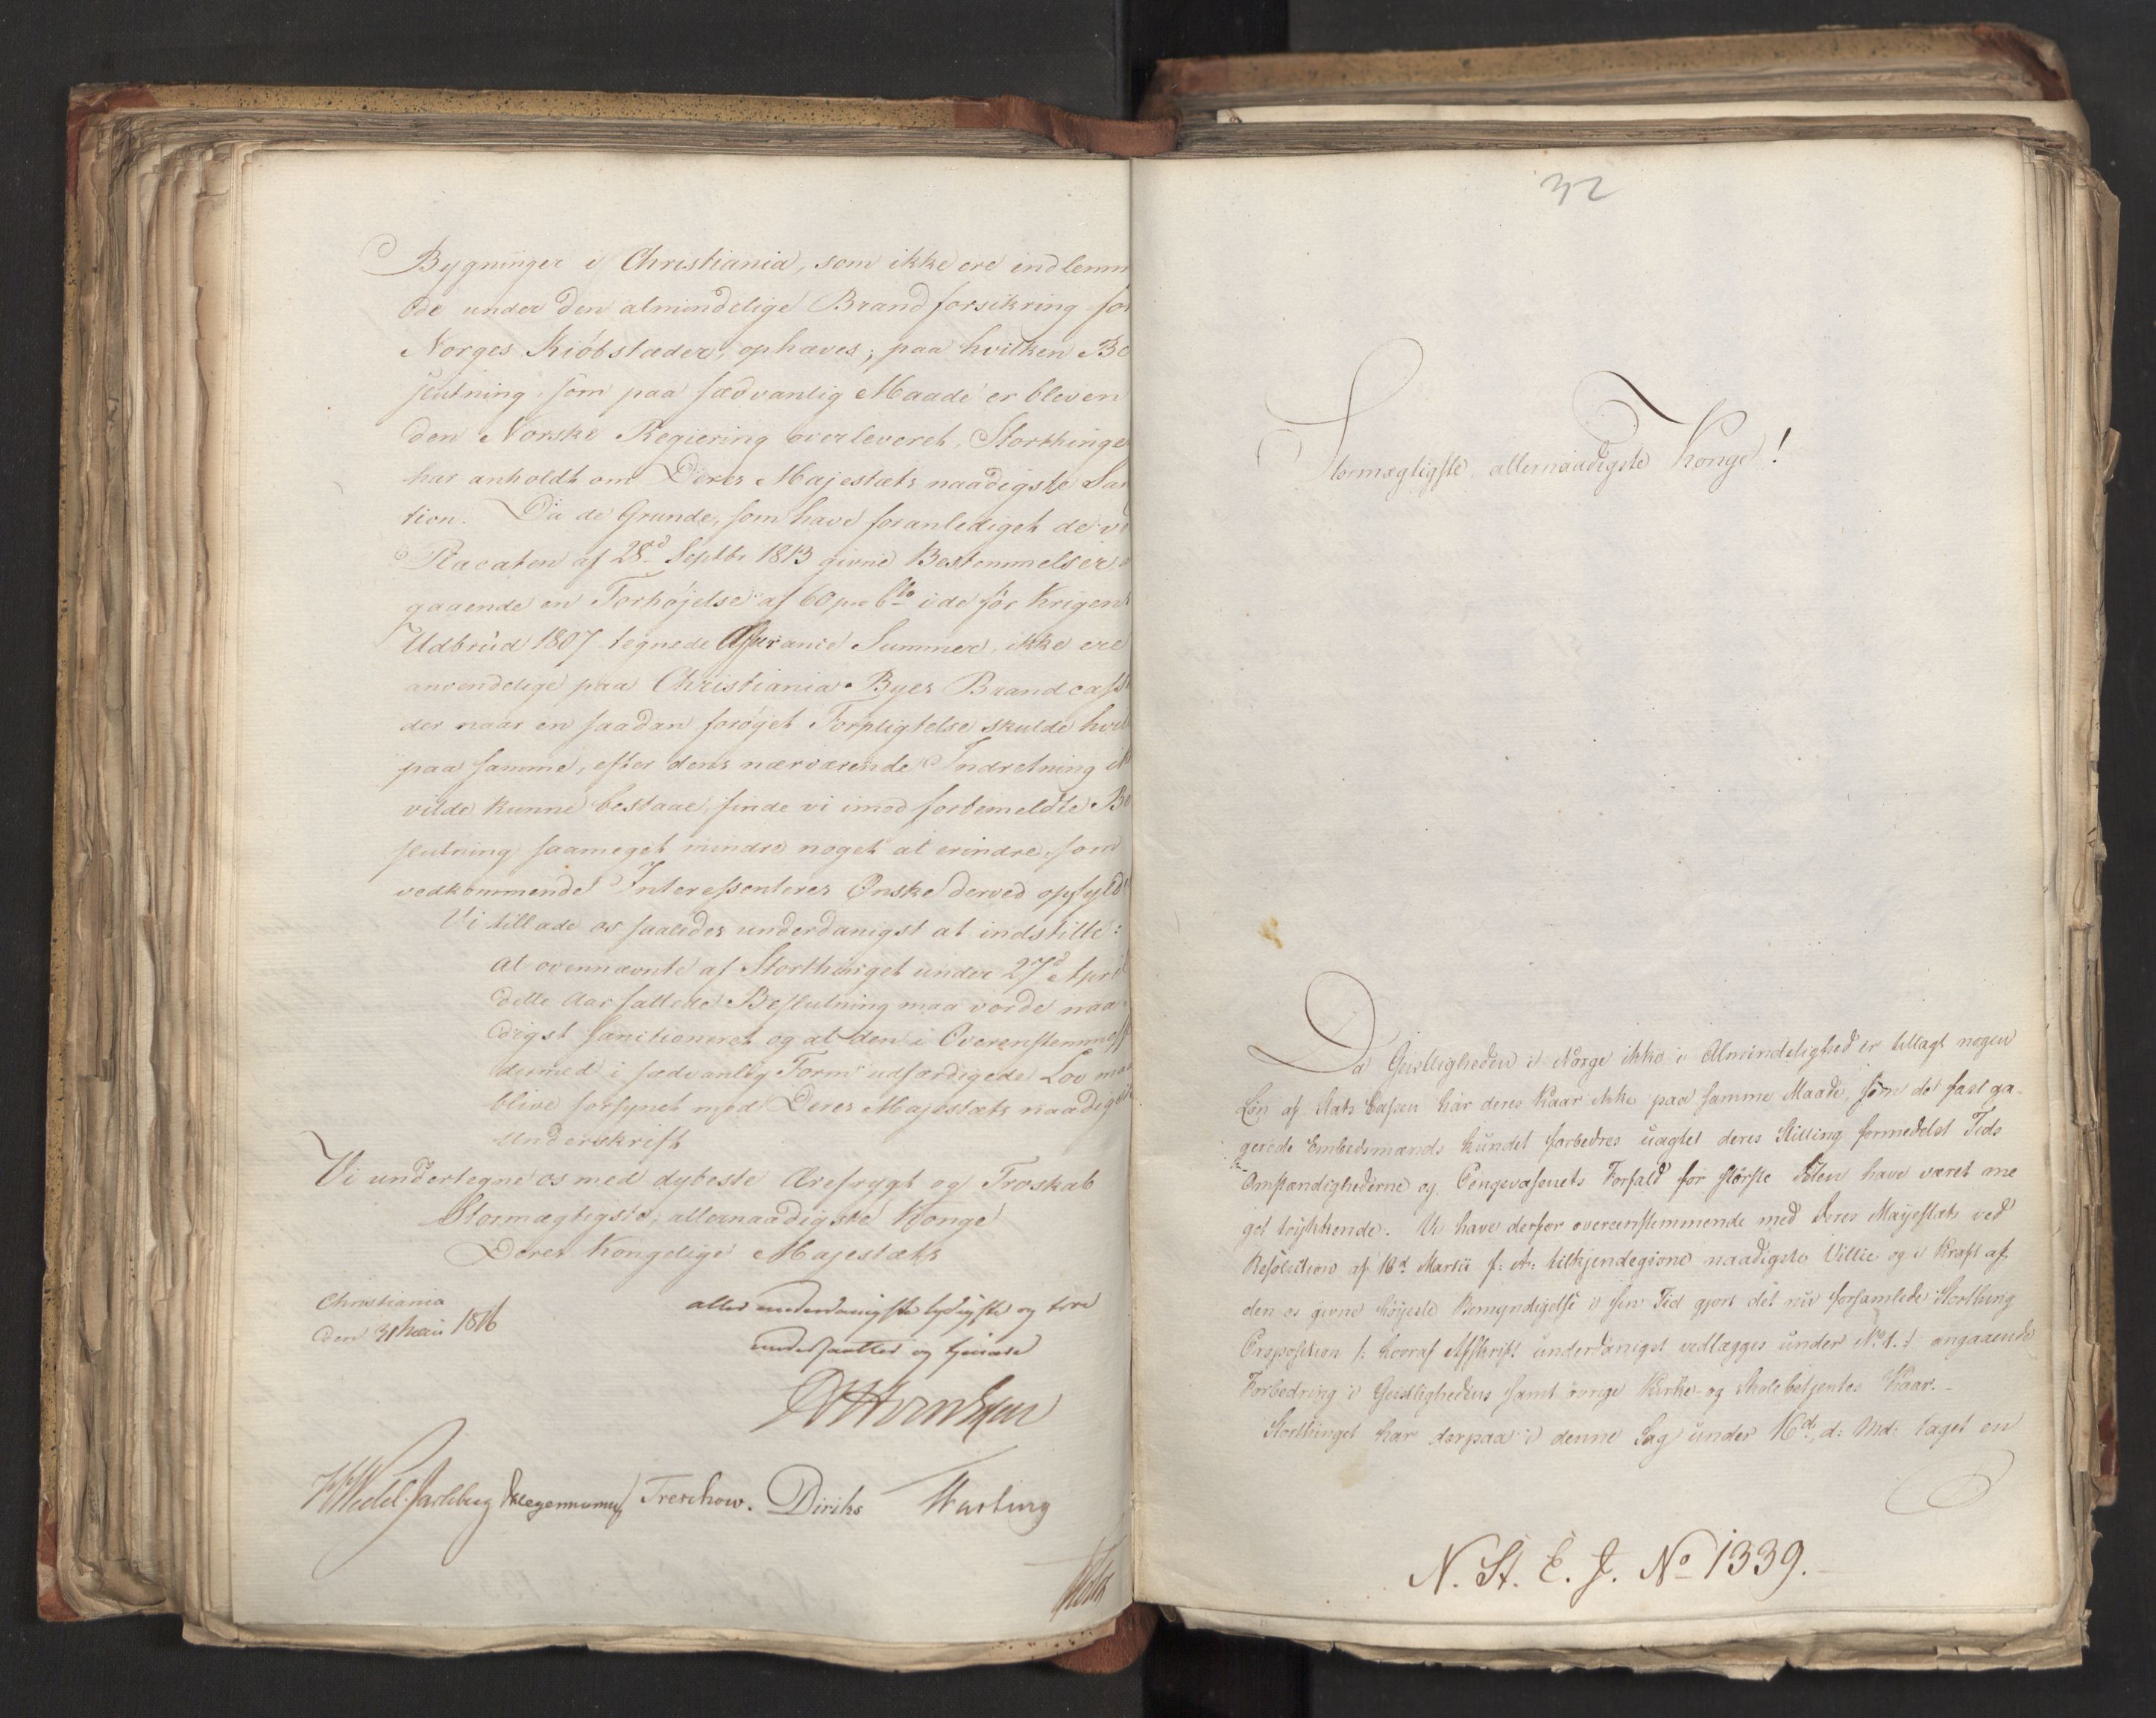 Bygninger i Christiania, som ikke ere indlemm
ede under den almindelige Brandforsikring for
Norges Kiøbstæder, ophæves; paa hvilken Be
slutning, som paa sædvanlig Maade er bleven
den Norske Regjering overleveret, Storthinge
har anholdt om Deres Majestæts naadigste San
tion. Da de Grunde, som have foranlediget de v
Placaten af 28d Septbr 1813 givne Bestemmelser
gaaende en Forhøjelse af 60 pro Cto i de før Krigens
Udbrud 1807 tegnede Assurance Summer, ikke ere
anvendelige paa Christiania Byes Brandcasse
der naar en saadan forøget Forpligtelse skulde hvil
paa samme, efter dens nærværende Indretning ik
vilde kunne bestaae, finde vi imod forbemeldte Be
slutning saameget mindre noget at erindre, som
vedkommende Interessenteres Ønske derved opfyld
Vi tillade os saaledes underdanigst at indstille:
at ovennævnte af Storthinget under 27d April
dette Aar fattede Beslutning maa vorde naa
digst sanctioneret og at den i Overensstemmelse
dermed i sædvanlig Form udfærdigede Lov maa
blive forsynet med Deres Majestæts naadigste
Underskrift
Vi undertegne os med dybeste Ærefrygt og Troskab
Stormægtigste, allernaadigste Konge
Deres Kongelige Majestæts
Christiania
den 31 1816
allerunderdanigste lydigste og troe
undersaatter og tjenere
Wedel-Jarlsberg Treschow. Diriks
32
Stormægtigste, allernaadigste Konge!
Da Geistligheden i Norge ikke i Almindelighed er tillagt nogen
Løn af Stats Cassen har deres Kaar ikke paa samme Maade, som de fast ga-
gerede Embedsmænds kundet forbedres uagtet deres Stilling formedelst Tids
Omstændighederne og Pengevæsenets Forfald for største Delen have været me
get trykkende. Vi have derfor overeensstemmende med Deres Majestæts ved
Resolution af 16d Martii f: A: tilkjendegivne naadigste Villie og i Kraft af
den os givne høyeste Bemyndigelse i sin Tid gjort det nu forsamlede Storthing
Proposition /: hvoraf Afskrift underdanigst vedlægges under No 1. :/ angaaende
Forbedring i Geistlighedens samt øvrige Kirke- og Skolebetjentes Kaar.-
Storthinget har derpaa i denne Sag under 16d d: Md: taget en
N. St. E. J. No 1339.